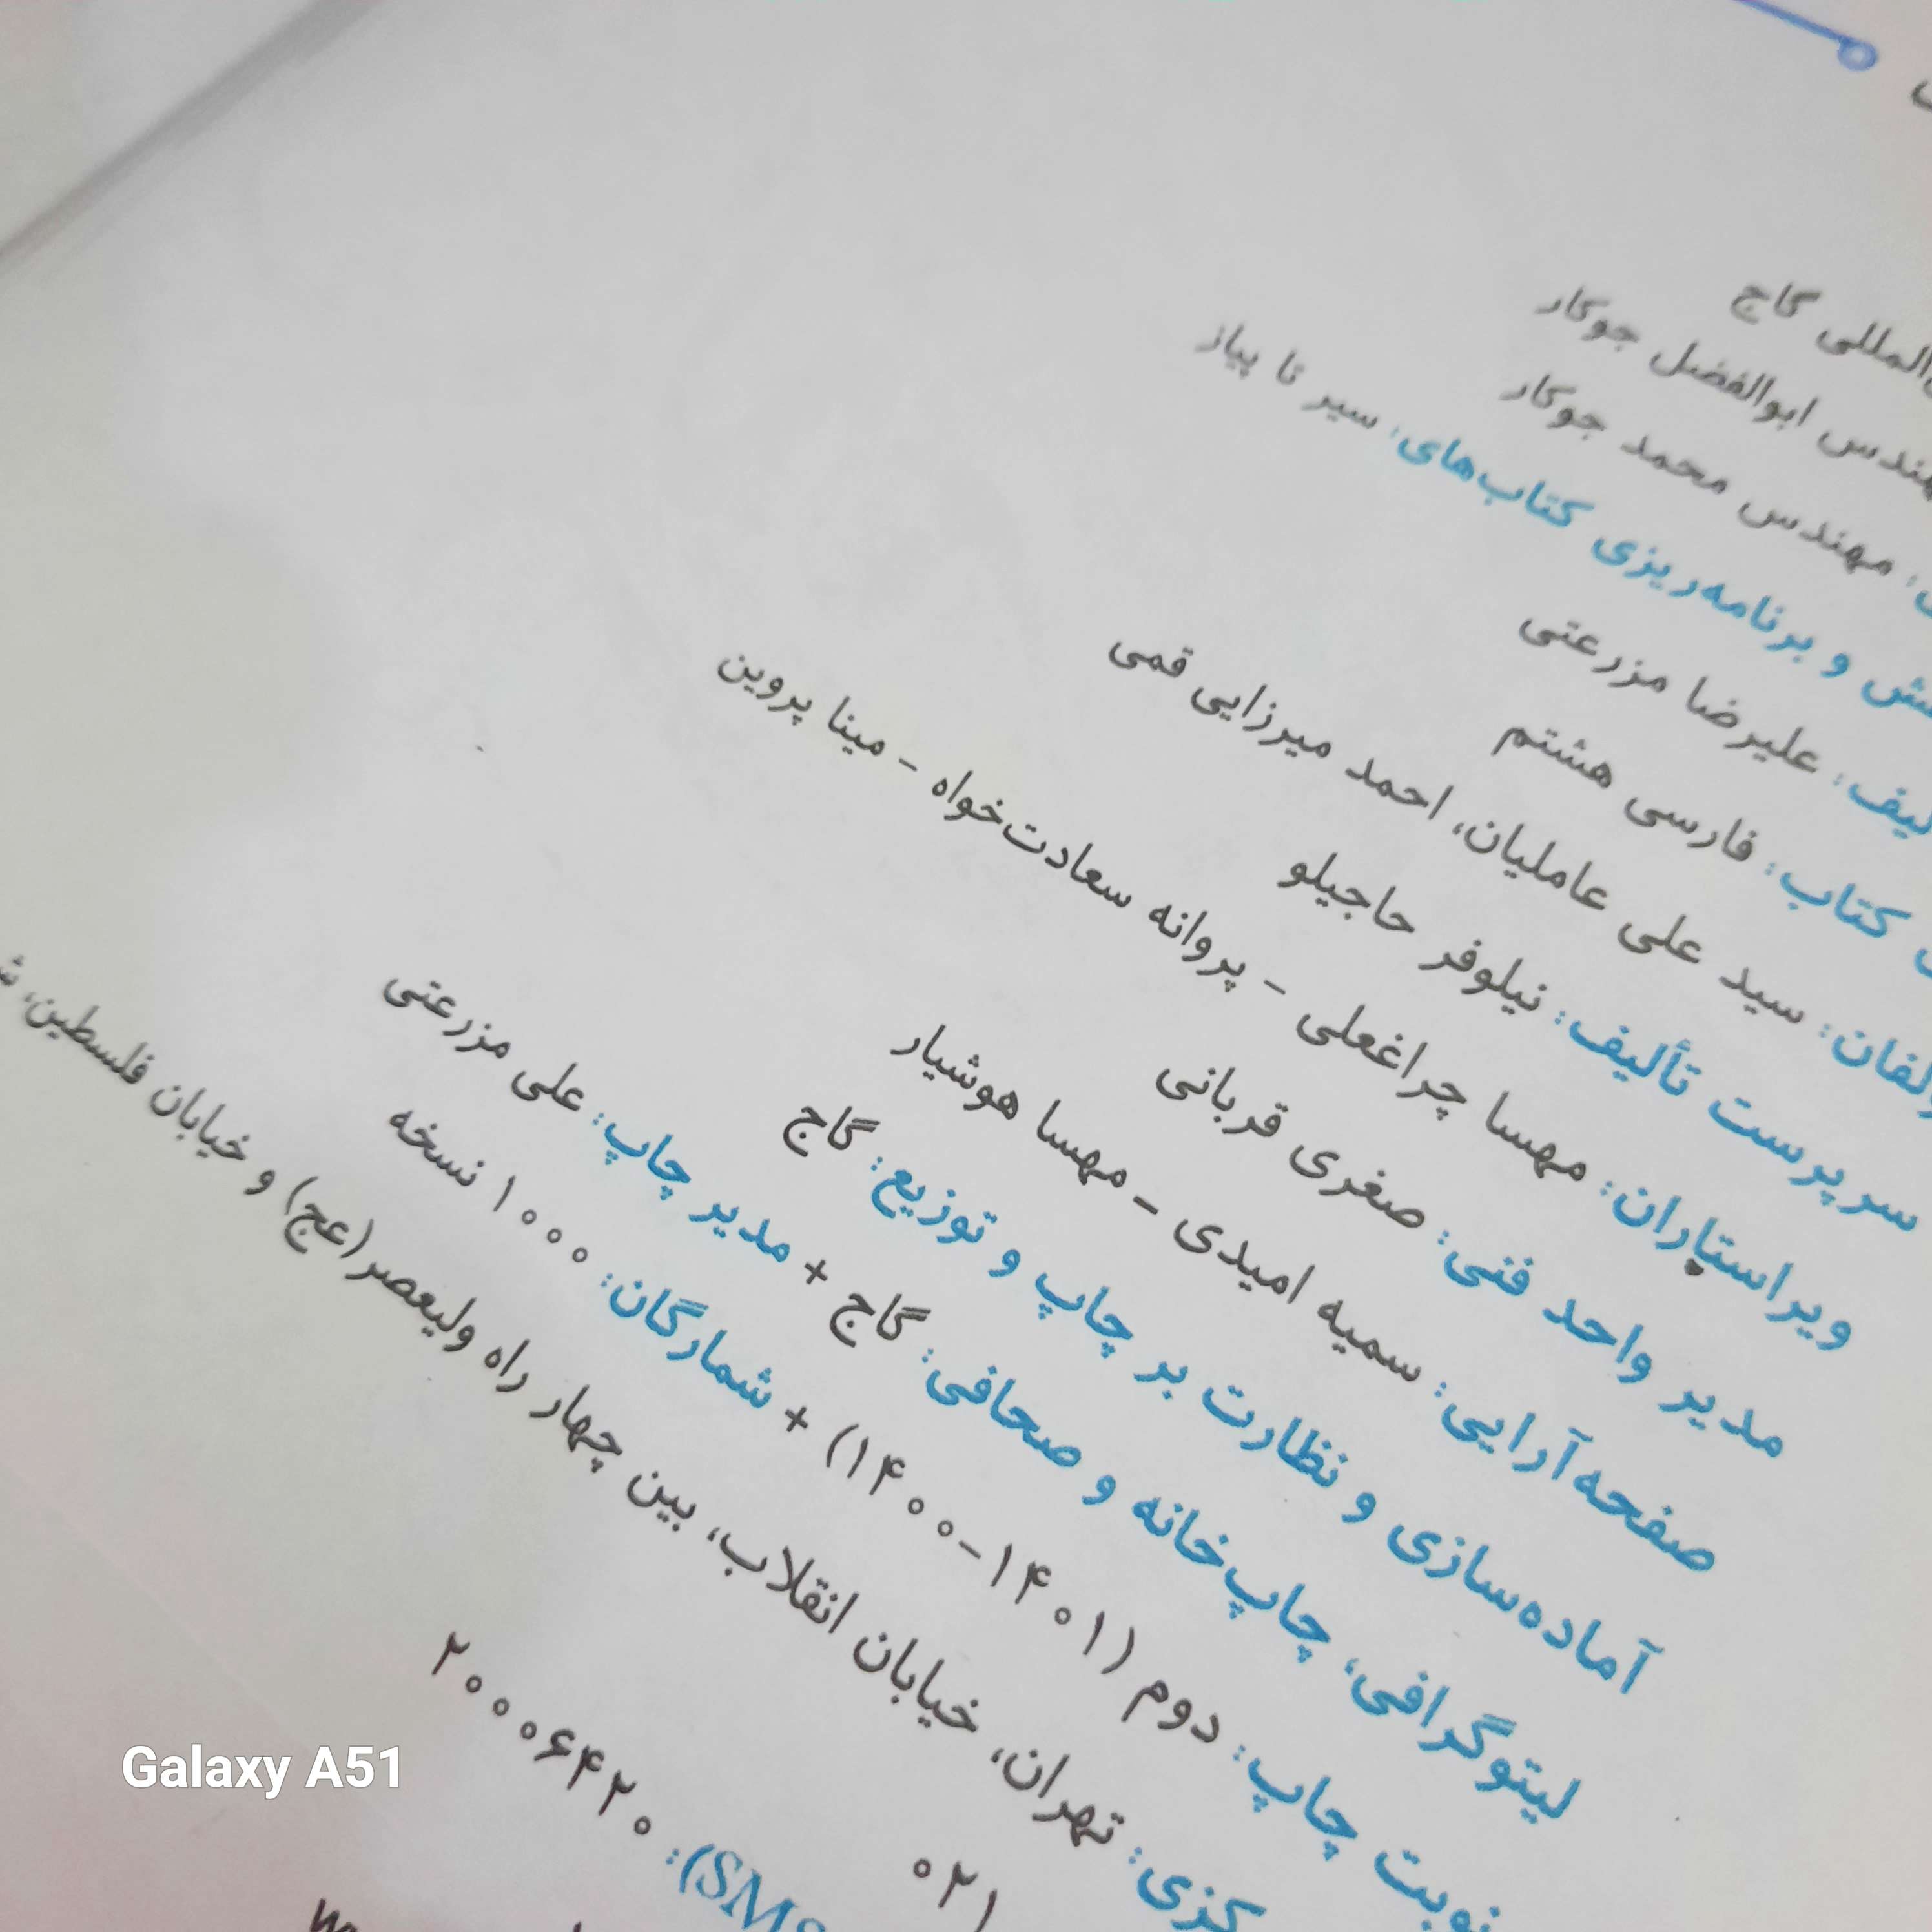 گاج
مهندس ابوالفضل جوکار
مهندس محمد جوکار
و برنامه‌ریزی کتاب‌های: سیر تا پیاز
علیرضا مزرعتی
کتاب: فارسی هشتم
سید علی عاملیان، احمد میرزایی قمی
سرپرست تألیف: نیلوفر حاجیلو
ویراستاران: مهسا چراغعلی - پروانه سعادت‌خواه - مینا پروین
مدیر واحد فنی: صغری قربانی
صفحه‌آرایی: سمیه امیدی - مهسا هوشیار
آماده‌سازی و نظارت بر چاپ و توزیع: گاج
لیتوگرافی، چاپ‌خانه و صحافی: گاج + مدیر چاپ: علی مزرعتی
نوبت چاپ: دوم (۱۴۰۱-۱۴۰۰) + شمارگان: ۱۰۰۰ نسخه
تهران، خیابان انقلاب، بین چهار راه ولیعصر(عج) و خیابان فلسطین،
۰۲۱
(SMS): ۲۰۰۰۶۴۲۰
Galaxy A51